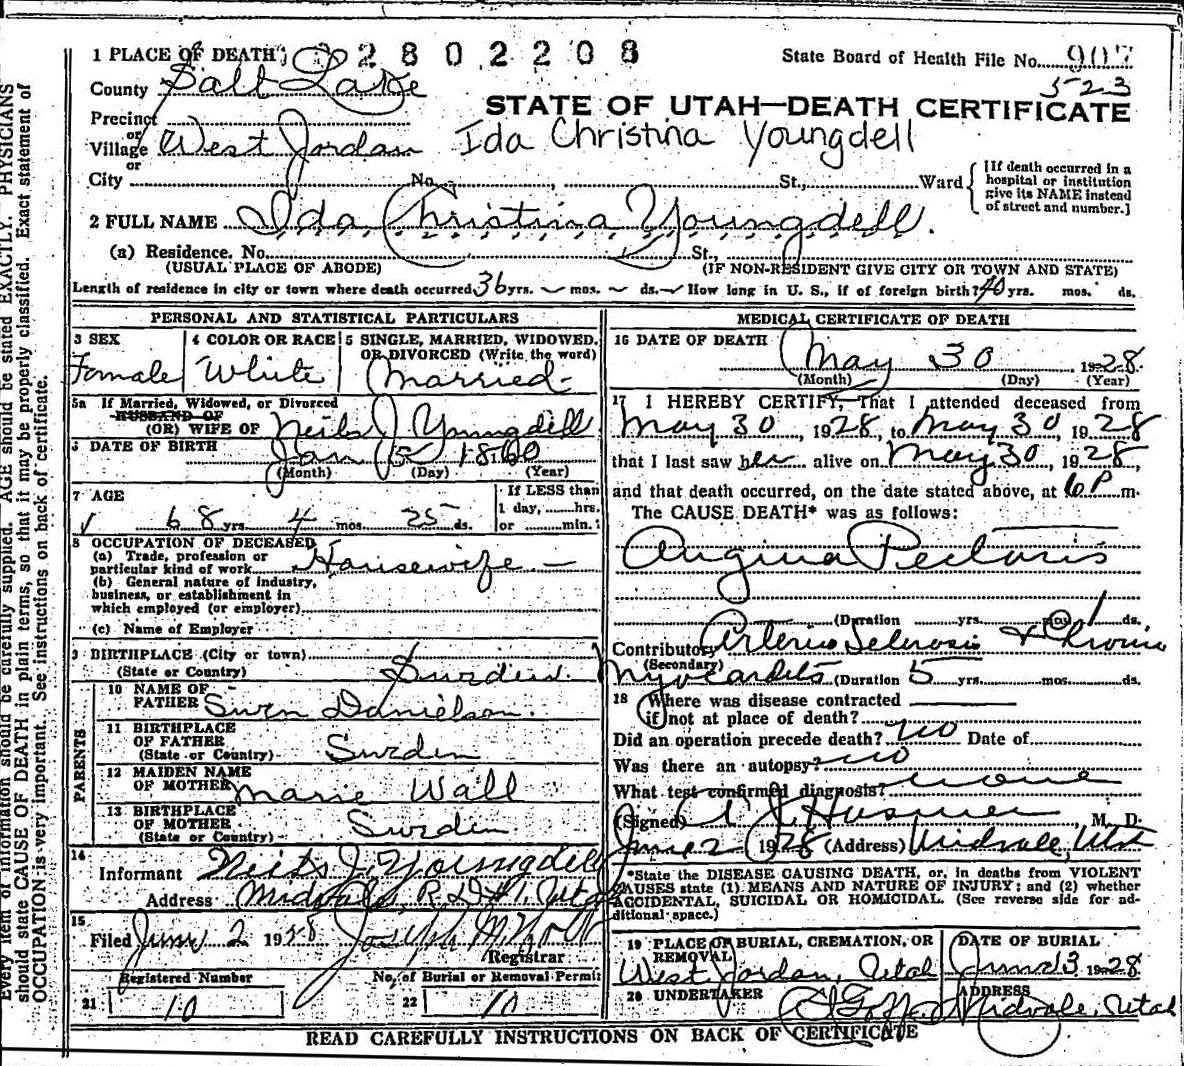 Every item of information should be carefully supplied. AGE should be stated EXACTLY. PHYSICIANS
should state CAUSE OF DEATH in plain terms, so that it may be properly classified. Exact statement of
OCCUPATION is very important. See instructions on back of certificate.
1 PLACE OF DEATH 2802208 State Board of Health File No. 907
523
County Salt Lake
STATE OF UTAH—DEATH CERTIFICATE
Precinct
or
Village West Jordan Ida Christina Youngdell
or
City No. , St., Ward
[If death occurred in a
hospital or institution
give its NAME instead
of street and number.]
2 FULL NAME Ida Christina Youngdell.
(a) Residence. No. St.,
(USUAL PLACE OF ABODE) (IF NON-RESIDENT GIVE CITY OR TOWN AND STATE)
Length of residence in city or town where death occurred 36 yrs. mos. ds. How long in U. S., if of foreign birth? 40 yrs. mos. ds.
PERSONAL AND STATISTICAL PARTICULARS
3 SEX 4 COLOR OR RACE 5 SINGLE, MARRIED, WIDOWED,
OR DIVORCED (Write the word)
Female White Married
5a If Married, Widowed, or Divorced
HUSBAND OF
(OR) WIFE OF Neils J Youngdell
6 DATE OF BIRTH Jan 5 1860
(Month) (Day) (Year)
7 AGE If LESS than
1 day, hrs.
68 yrs. 4 mos. 25 ds. or min.
8 OCCUPATION OF DECEASED
(a) Trade, profession or
particular kind of work Housewife
(b) General nature of industry,
business, or establishment in
which employed (or employer)
(c) Name of Employer
9 BIRTHPLACE (City or town)
(State or Country) Sweden.
PARENTS
10 NAME OF
FATHER Swen Danielson.
11 BIRTHPLACE
OF FATHER
(State or Country) Sweden
12 MAIDEN NAME
OF MOTHER Marie Wall
13 BIRTHPLACE
OF MOTHER
(State or Country) Sweden
14
Informant Neils J. Youngdell
Address Midvale, R.D.#1, Utah
15
Filed June 2 1928 Joseph M Holt
Registrar
Registered Number No. of Burial or Removal Permit
21 10 22 10
MEDICAL CERTIFICATE OF DEATH
16 DATE OF DEATH
May 30, 1928
(Month) (Day) (Year)
17 I HEREBY CERTIFY, That I attended deceased from
May 30, 1928, to May 30 1928
that I last saw her alive on May 30, 1928,
and that death occurred, on the date stated above, at 6 P m.
The CAUSE DEATH* was as follows:
Angina Pectoris
(Duration yrs. mos. 1 ds.
Contributory Arterio Sclerosis & Chronic
(Secondary)
Myocarditis (Duration 5 yrs. mos. ds.
18 Where was disease contracted
if not at place of death?
Did an operation precede death? no Date of
Was there an autopsy? no
What test confirmed diagnosis? none
(Signed) J. Husmer M. D.
June 2 1928 (Address) Midvale, Utah
*State the DISEASE CAUSING DEATH, or, in deaths from VIOLENT
CAUSES state (1) MEANS AND NATURE OF INJURY; and (2) whether
ACCIDENTAL, SUICIDAL OR HOMICIDAL. (See reverse side for ad-
ditional space.)
19 PLACE OF BURIAL, CREMATION, OR
REMOVAL DATE OF BURIAL
West Jordan, Utah June 3 1928
20 UNDERTAKER ADDRESS
Goff Midvale, Utah
READ CAREFULLY INSTRUCTIONS ON BACK OF CERTIFICATE